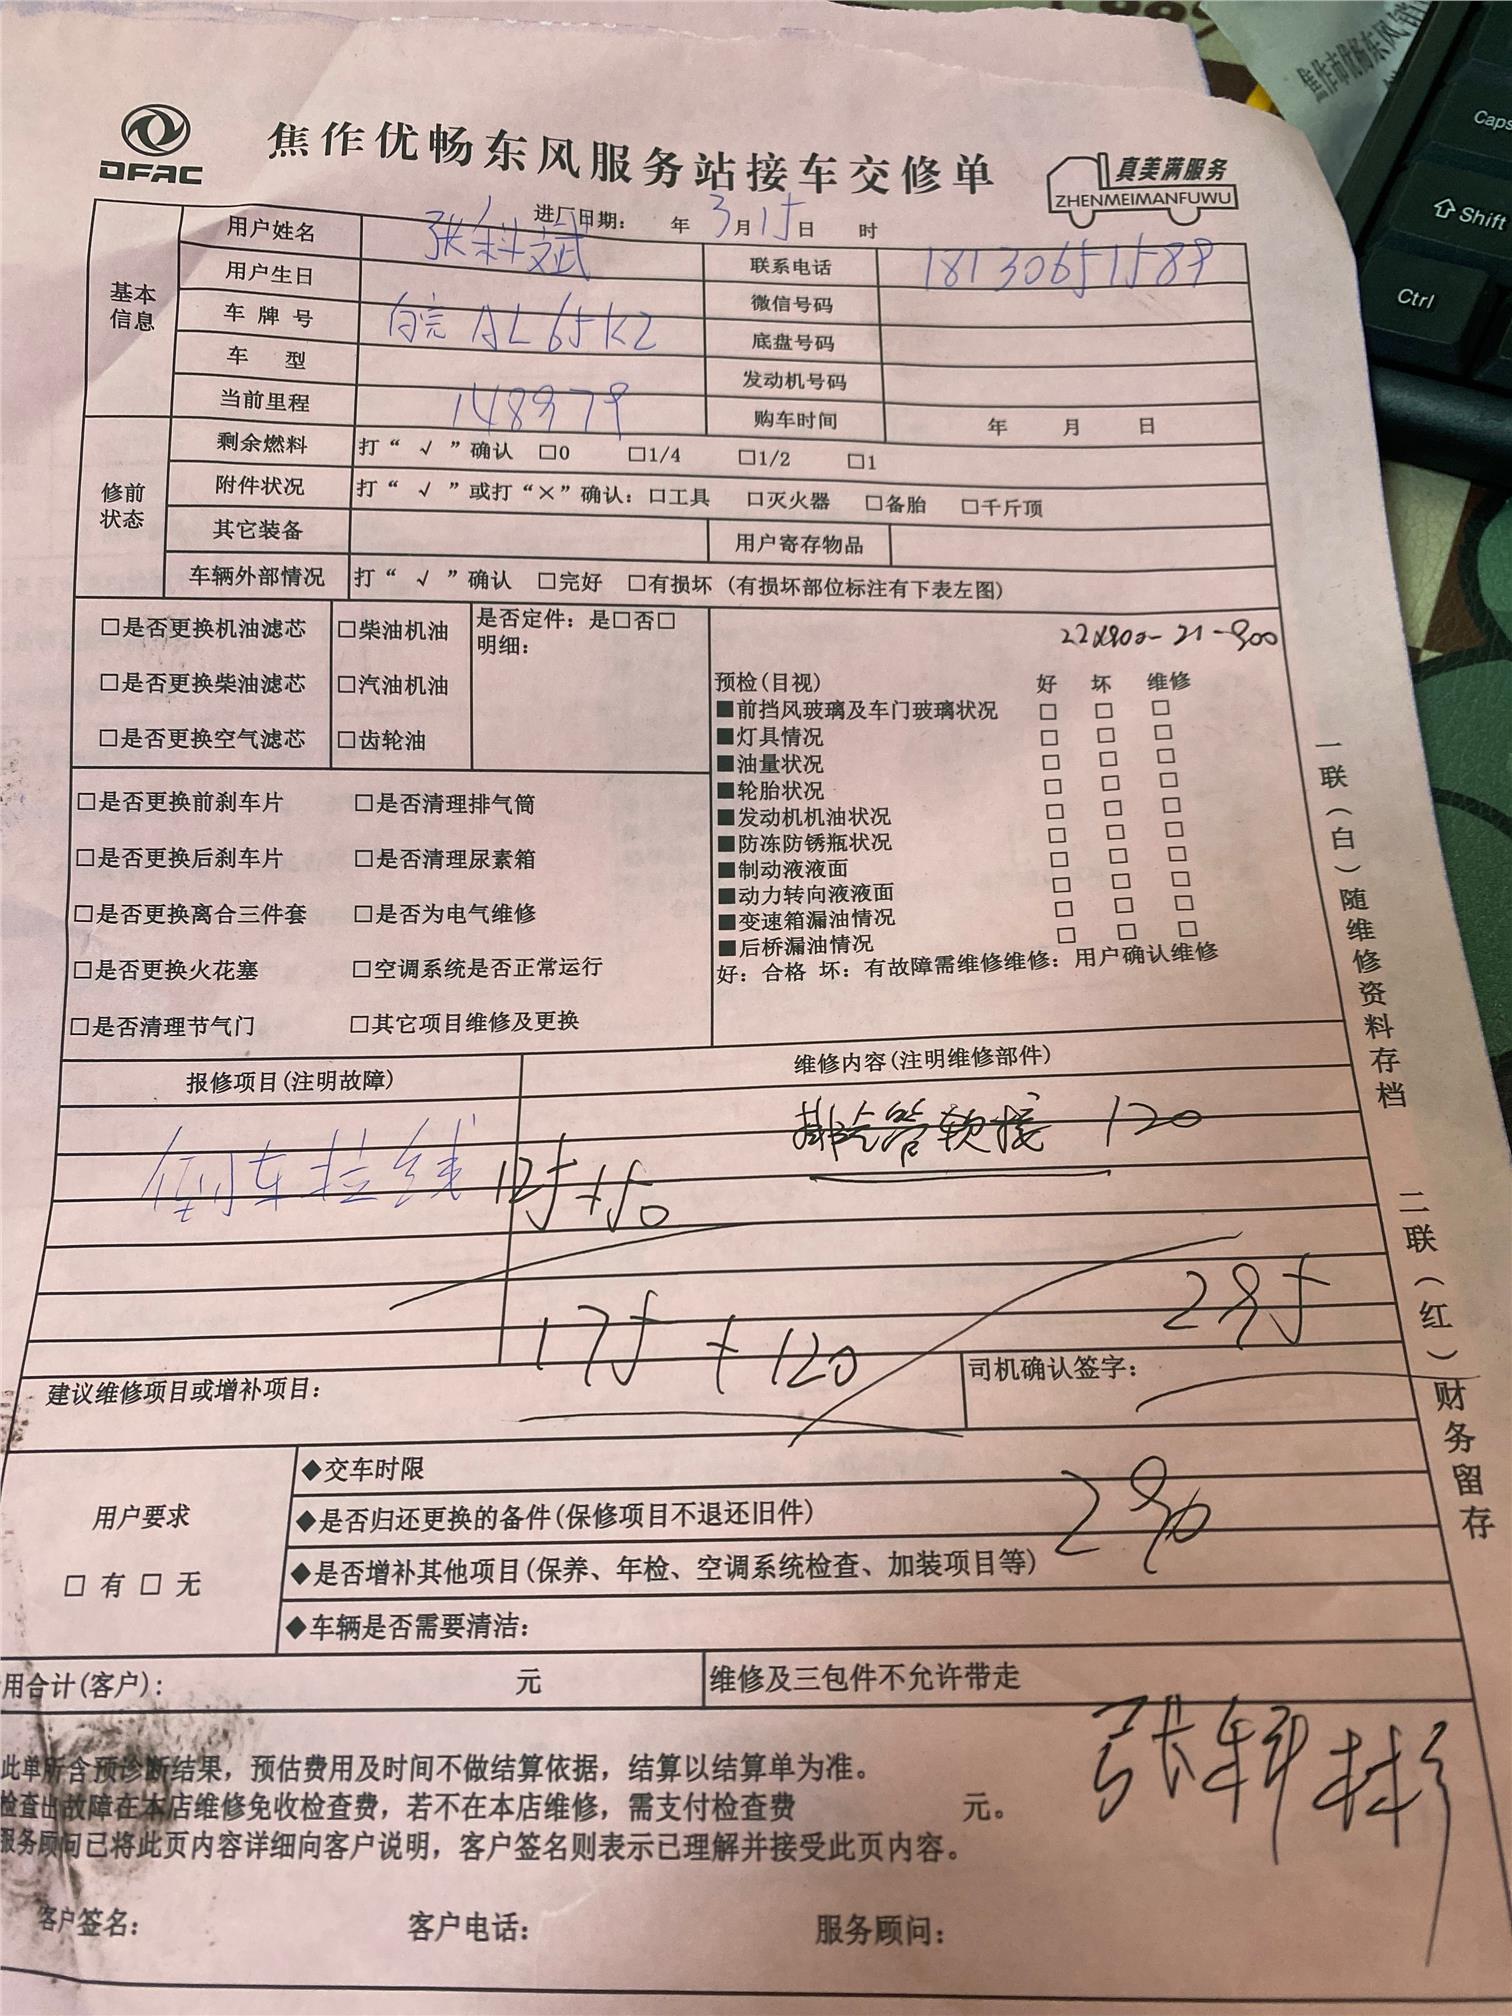 DFAC
焦作优畅东风服务站接车交修单
真美满服务
ZHENMEIMANFUWU
进厂日期: 年 3月15日 时
基本信息
用户姓名 张科斌 联系电话 18130651589
用户生日 微信号码
车牌号 皖AL65K2 底盘号码
车 型 发动机号码
当前里程 148979 购车时间 年 月 日
修前状态
剩余燃料 打“√”确认 □0 □1/4 □1/2 □1
附件状况 打“√”或打“×”确认: □工具 □灭火器 □备胎 □千斤顶
其它装备 用户寄存物品
车辆外部情况 打“√”确认 □完好 □有损坏 (有损坏部位标注有下表左图)
□是否更换机油滤芯 □柴油机油 是否定件: 是□否□
明细:
□是否更换柴油滤芯 □汽油机油
□是否更换空气滤芯 □齿轮油
□是否更换前刹车片 □是否清理排气筒
□是否更换后刹车片 □是否清理尿素箱
□是否更换离合三件套 □是否为电气维修
□是否更换火花塞 □空调系统是否正常运行
□是否清理节气门 □其它项目维修及更换
预检(目视) 好 坏 维修
■前挡风玻璃及车门玻璃状况 □ □ □
■灯具情况 □ □ □
■油量状况 □ □ □
■轮胎状况 □ □ □
■发动机机油状况 □ □ □
■防冻防锈瓶状况 □ □ □
■制动液液面 □ □ □
■动力转向液液面 □ □ □
■变速箱漏油情况 □ □ □
■后桥漏油情况 □ □ □
好: 合格 坏: 有故障需维修维修: 用户确认维修
报修项目(注明故障) 维修内容(注明维修部件)
排气管软接 120
倒车拉线 125+50
175+120
295
建议维修项目或增补项目: 司机确认签字:
用户要求
□ 有 □ 无
◆交车时限
◆是否归还更换的备件(保修项目不退还旧件)
290
◆是否增补其他项目(保养、年检、空调系统检查、加装项目等)
◆车辆是否需要清洁:
用合计(客户): 元 维修及三包件不允许带走
此单所含预诊断结果, 预估费用及时间不做结算依据, 结算以结算单为准。
检查出故障在本店维修免收检查费, 若不在本店维修, 需支付检查费 元。
服务顾问已将此页内容详细向客户说明, 客户签名则表示已理解并接受此页内容。
张科彬
客户签名: 客户电话: 服务顾问:
一联(白)随维修资料存档 二联(红)财务留存
Caps
Shift
Ctrl